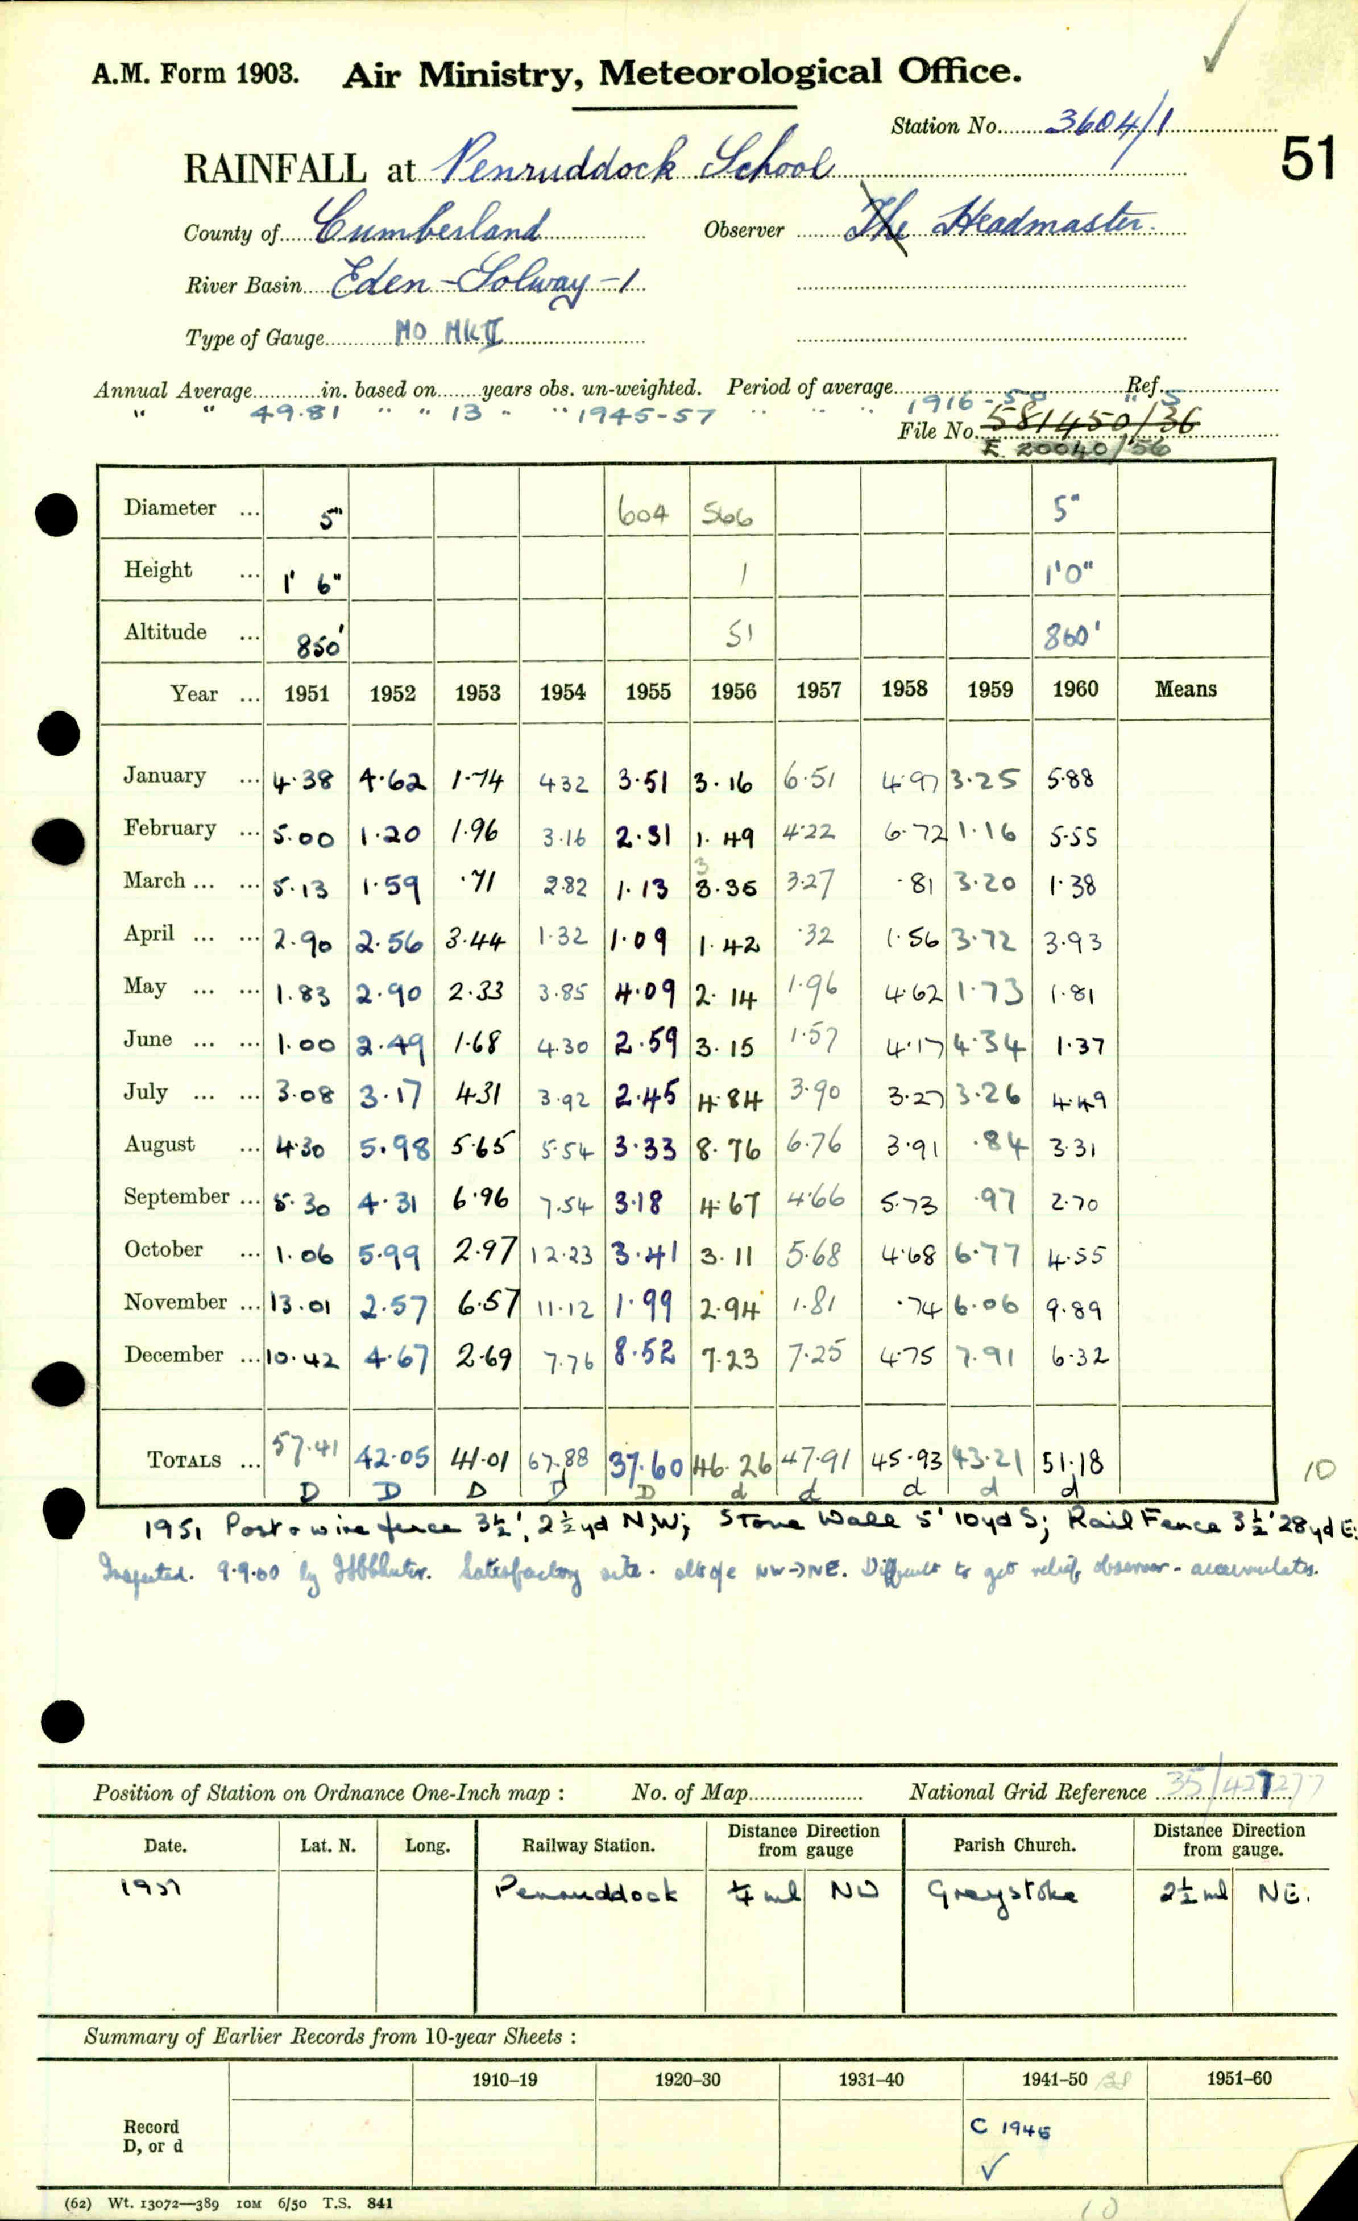 A.M. Form 1903. Air Ministry, Meteorological Office.
Station No. 3604/1
51
RAINFALL at Penruddock School
County of Cumberland Observer The Headmaster.
River Basin Eden - Solway - 1
Type of Gauge MO MK II
Annual Average in. based on years obs. un-weighted. Period of average 1916-50 Ref. S
" " 49.81 " " 13 " " 1945-57 " " "
File No. 581450/36
E. 20040/56
Diameter ... 5" 604 566 5"
Height ... 1' 6" 1 1'0"
Altitude ... 850' 51 860'
Year ... 1951 1952 1953 1954 1955 1956 1957 1958 1959 1960 Means
January ... 4.38 4.62 1.74 4.32 3.51 3.16 6.51 4.97 3.25 5.88
February ... 5.00 1.20 1.96 3.16 2.31 1.49 4.22 6.72 1.16 5.55
3
March ... ... 5.13 1.59 .71 2.82 1.13 3.35 3.27 .81 3.20 1.38
April ... ... 2.90 2.56 3.44 1.32 1.09 1.42 .32 1.56 3.72 3.93
May ... ... 1.83 2.90 2.33 3.85 4.09 2.14 1.96 4.62 1.73 1.81
June ... ... 1.00 2.49 1.68 4.30 2.59 3.15 1.57 4.17 4.34 1.37
July ... ... 3.08 3.17 4.31 3.92 2.45 4.84 3.90 3.27 3.26 4.49
August ... 4.30 5.98 5.65 5.54 3.33 8.76 6.76 3.91 .84 3.31
September ... 5.30 4.31 6.96 7.54 3.18 4.67 4.66 5.73 .97 2.70
October ... 1.06 5.99 2.97 12.23 3.41 3.11 5.68 4.68 6.77 4.55
November ... 13.01 2.57 6.57 11.12 1.99 2.94 1.81 .74 6.06 9.89
December ... 10.42 4.67 2.69 7.76 8.52 7.23 7.25 4.75 7.91 6.32
TOTALS ... 57.41 42.05 41.01 67.88 37.60 46.26 47.91 45.93 43.21 51.18 10
D D D D D d d d d d
1951 Post & wire fence 3½', 2½ yd N,W; Stone Wall 5' 10yd S; Rail Fence 3½' 28yd E;
Inspected. 9.9.60 by Satisfactory site. NW->NE. Difficult to get relief observer - accumulates.
Position of Station on Ordnance One-Inch map : No. of Map National Grid Reference 35/427277
Date. Lat. N. Long. Railway Station. Distance from Direction gauge Parish Church. Distance from Direction gauge.
1951 Penruddock ¼ ml NW Greystoke 2½ ml NE.
Summary of Earlier Records from 10-year Sheets :
1910–19 1920–30 1931–40 1941–50 1951–60
Record
D, or d
C 1945
(62) Wt. 13072—389 10M 6/50 T.S. 841
10